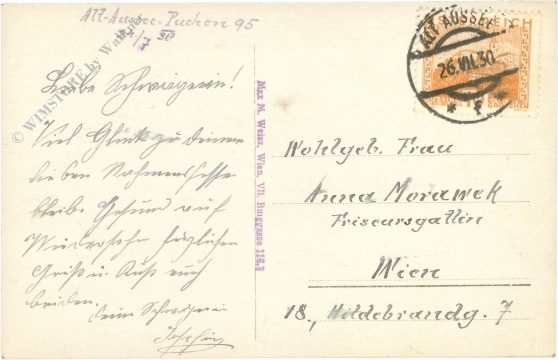 Alt-Aussee-Puchen 95
Liebe Schwägerin!
Viel Glück zu deinem
lieben Nahmensfeste
bleibe Gesund auf
Wiedersehn herzlichen
Gruß u. Kuß euch
beiden.
deine Schwägerin
© WIMSTORE by
Max M. Weisz, Wien, VII. Burggasse 116
ALT AUSSEE
26.VII.30
ÖSTERREICH
Wohlgeb. Frau
Anna Morawek
Friseursgattin
Wien
18., Hildebrandg. 7